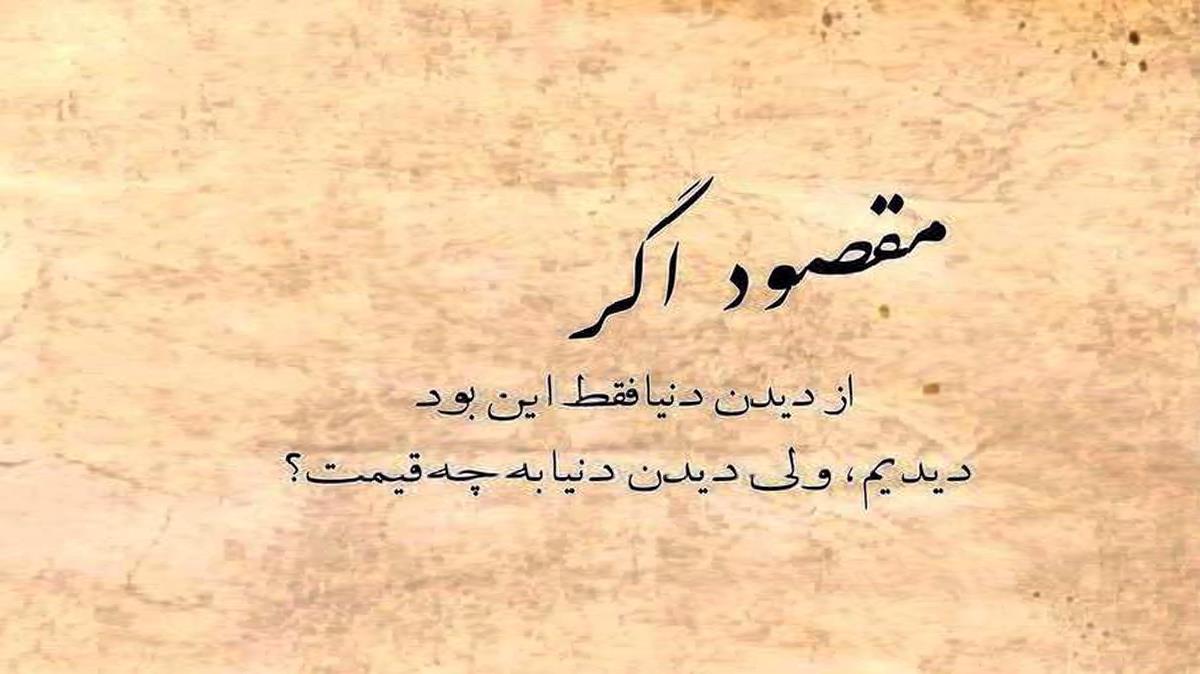 مقصود اگر
از دیدن دنیا فقط این بود
دیدیم، ولی دیدن دنیا به چه قیمت؟